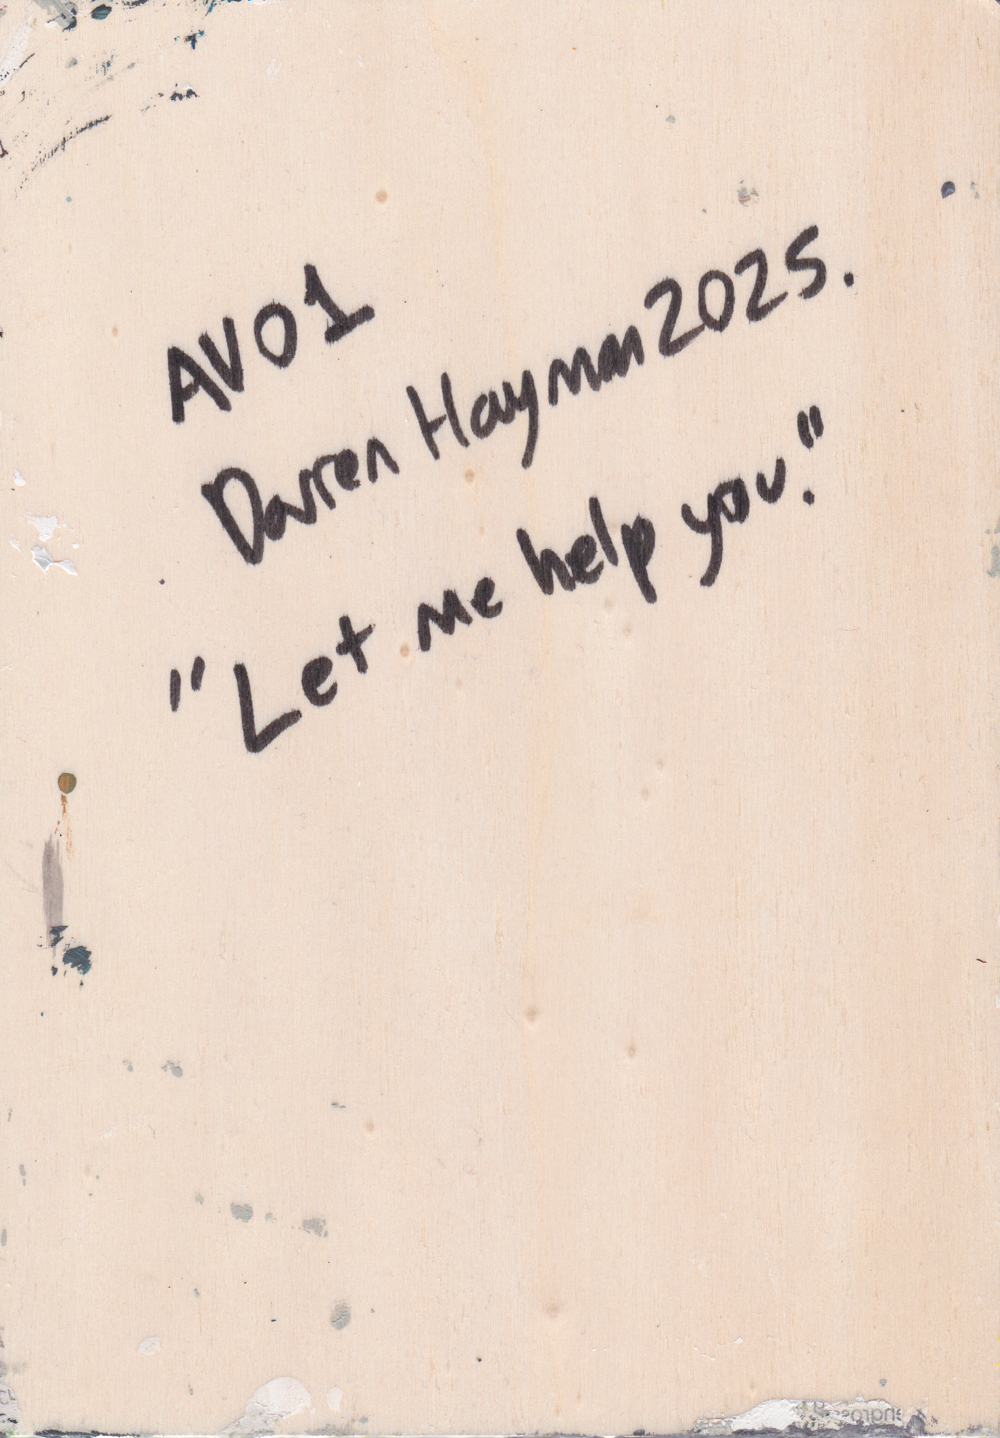 AVO1
Darren Hayman 2025.
"Let me help you."